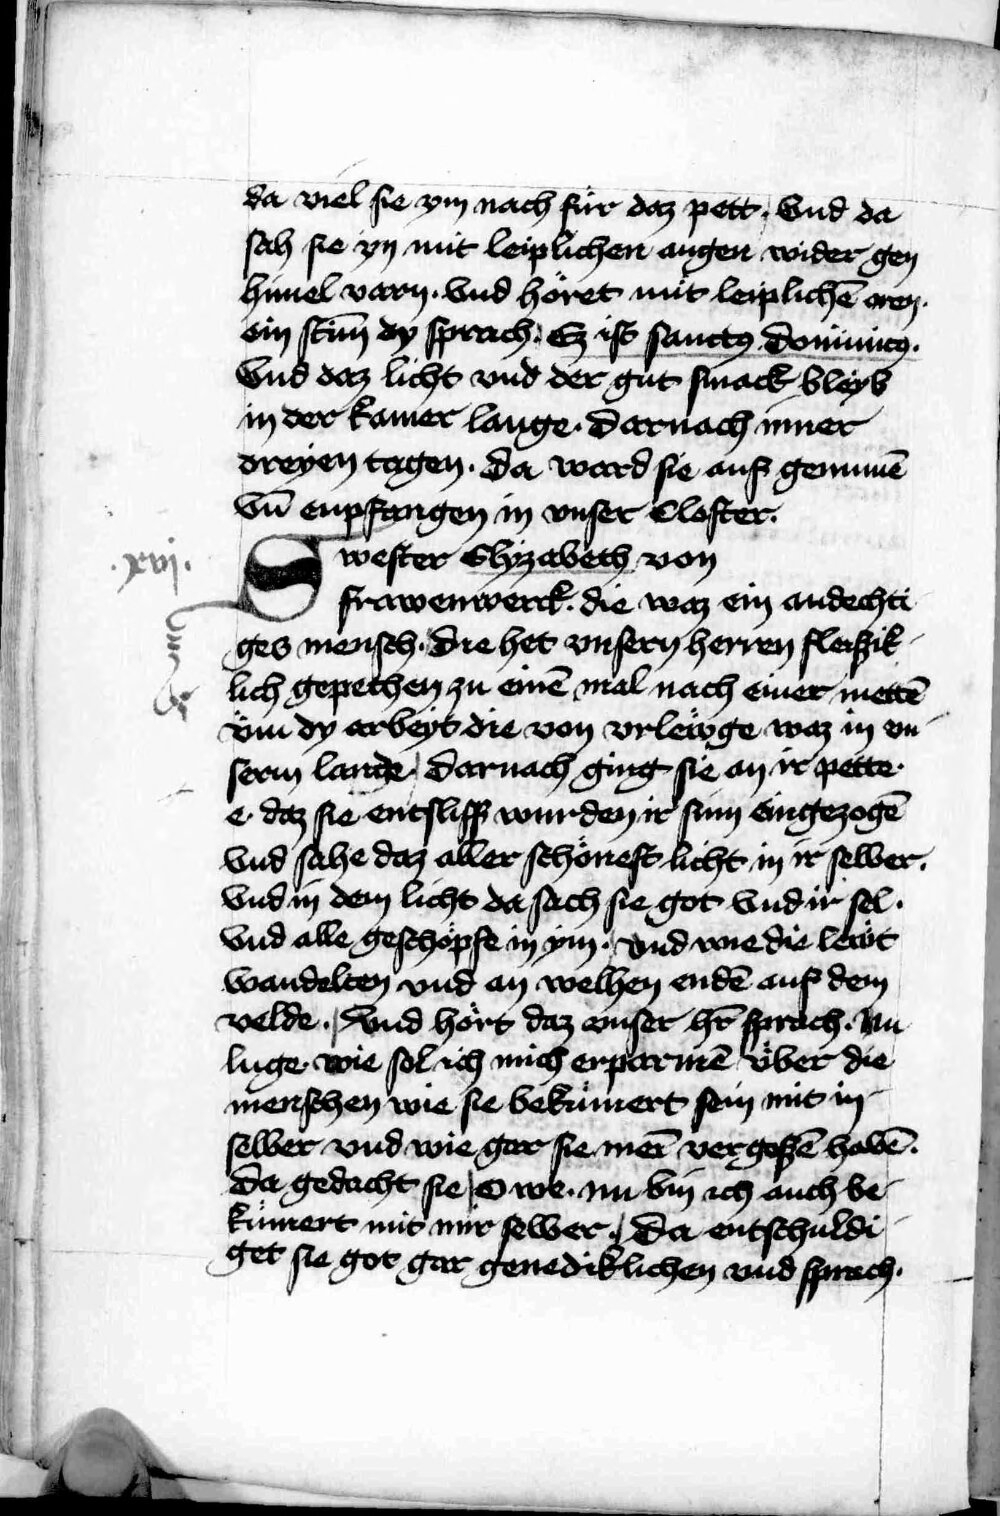 da viel sie ym nach für daz pett. Vnd da
sah sie yn mit leiplichen augen wider gen
himel varn. Vnd höret mit leiplichē oren.
ein stim̄ dy sprach. Ez ist sanctꝰ dominicꝰ.
Vnd daz licht vnd der gut smack bleyb
in der kamer lange. Darnach inner
dreyen tagen. Da ward sie auf genumē
Vn̄ enpfangen in vnser Closter.
.xvj.
Swester Elyzabeth von
frawenwerck. die waz ein andechti
ges mensch. Die het vnsern herren fleiszik
lich gepethen zu einē mal nach einer mettē
vm dy arbeyt die von vrlewge waz in vn
serm lande. Darnach ging sie an ir pette.
e. daz sie entsliff wurden ir sinn eingezogē
Vnd sahe daz aller schönest licht in ir selber.
Vnd in dem licht da sach sie got Vnd ir sel.
Vnd alle geschöpfe in ym. Vnd wie die lewt
wandelten vnd an welhen endē auf dem
velde. Vnd hört daz vnser hr̄ sprach. Nu
luge. wie sol ich mich erparmē über die
menschen wie sie bekümert sein mit in
selber vnd wie gar sie mei̅ vergeszē habē.
Da gedacht sie O we. nu bin ich auch be
kümert mit mir selber. Da entschuldi
get sie got gar genediklichen vnd sprach.